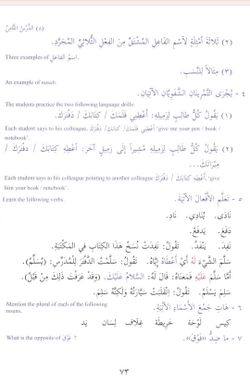 (٨) الدَّرْسُ الثَّامِنُ
(٢) ثَلَاثَةَ أَمْثِلَةٍ لِاسْمِ الفَاعِلِ المُشْتَقِّ مِنَ الفِعْلِ الثُّلَاثِيِّ المُجَرَّدِ.
Three examples of اِسْمُ الفَاعِلِ.
(٣) مِثَالًا لِلنَّسَبِ.
An example of nasab.
٤ - يُجْرَى التَّمْرِينَانِ الشَّفَوِيَّانِ الآتِيَانِ.
The students practice the two following language drills:
(١) يَقُولُ كُلُّ طَالِبٍ لِزَمِيلِهِ: أَعْطِنِي قَلَمَكَ / كِتَابَكَ / دَفْتَرَكَ.
Each student says to his colleague, أَعْطِنِي قَلَمَكَ / كِتَابَكَ / دَفْتَرَكَ 'give me your pen / book / notebook'.
(٢) يَقُولُ كُلُّ طَالِبٍ لِزَمِيلِهِ مُشِيرًا إِلَى زَمِيلٍ آخَرَ: أَعْطِهِ كِتَابَكَ / دَفْتَرَكَ /
Each student says to his colleague pointing to another colleague أَعْطِهِ كِتَابَكَ / دَفْتَرَكَ, 'give him your book / notebook'.
٥ - تَعَلَّمِ الأَفْعَالَ الآتِيَةَ. Learn the following verbs.
نَادَى يُنَادِي نَادِ.
دَفَعَ يَدْفَعُ.
نَفِدَ يَنْفَدُ. تَقُولُ: نَفِدَتْ نُسَخُ هَذَا الكِتَابِ فِي المَكْتَبَةِ.
سَلَّمَ الشَّيْءَ لَهُ أَيْ أَعْطَاهُ إِيَّاهُ. تَقُولُ: سَلَّمْتُ الدَّفْتَرَ لِلْمُدَرِّسِ: (يُسَلِّمُ).
أَمَّا سَلَّمَ عَلَيْهِ فَمَعْنَاهُ: قَالَ لَهُ: السَّلَامُ عَلَيْكَ. (وَقَدْ عَرَفْتَ ذَلِكَ مِنْ قَبْلُ).
سَلِمَ يَسْلَمُ. تَقُولُ: اِنْقَلَبَتْ سَيَّارَتُهُ وَلَكِنَّهُ سَلِمَ.
٦ - هَاتِ جَمْعَ الأَسْمَاءِ الآتِيَةِ. Mention the plural of each of the following nouns.
كِيسٌ لَوْحَةٌ خَرِيطَةٌ غِلَافٌ لِسَانٌ يَدٌ
٧ - مَا ضِدُّ «فَوْقَ»؟ What is the opposite of فَوْقَ ?
٧٣